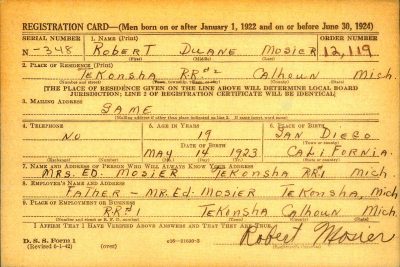 REGISTRATION CARD—(Men born on or after January 1, 1922 and on or before June 30, 1924)
SERIAL NUMBER 1. NAME (Print) ORDER NUMBER
N-348 ROBERT DUANE MOSIER 12,119
(First) (Middle) (Last)
2. PLACE OF RESIDENCE (Print)
TEKONSHA RR#2 CALHOUN MICH.
(Number and street) (Town, township, village, or city) (County) (State)
[THE PLACE OF RESIDENCE GIVEN ON THE LINE ABOVE WILL DETERMINE LOCAL BOARD
JURISDICTION; LINE 2 OF REGISTRATION CERTIFICATE WILL BE IDENTICAL]
3. MAILING ADDRESS
SAME
[Mailing address if other than place indicated on line 2. If same insert word same]
4. TELEPHONE 5. AGE IN YEARS 6. PLACE OF BIRTH
NO 19 SAN DIEGO
DATE OF BIRTH
MAY 14 1923 CALIFORNIA.
7. NAME AND ADDRESS OF PERSON WHO WILL ALWAYS KNOW YOUR ADDRESS
MRS. ED. MOSIER TEKONSHA RR1 MICH
8. EMPLOYER'S NAME AND ADDRESS
FATHER - MR. Ed. MOSIER TEKONSHA, MICH
9. PLACE OF EMPLOYMENT OR BUSINESS
RR#1 TEKONSHA CALHOUN MICH
(Number and street or R. F. D. number) (Town) (County) (State)
I AFFIRM THAT I HAVE VERIFIED ABOVE ANSWERS AND THAT THEY ARE TRUE.
D. S. S. Form 1
(Revised 6-1-42) (over) Robert Mosier